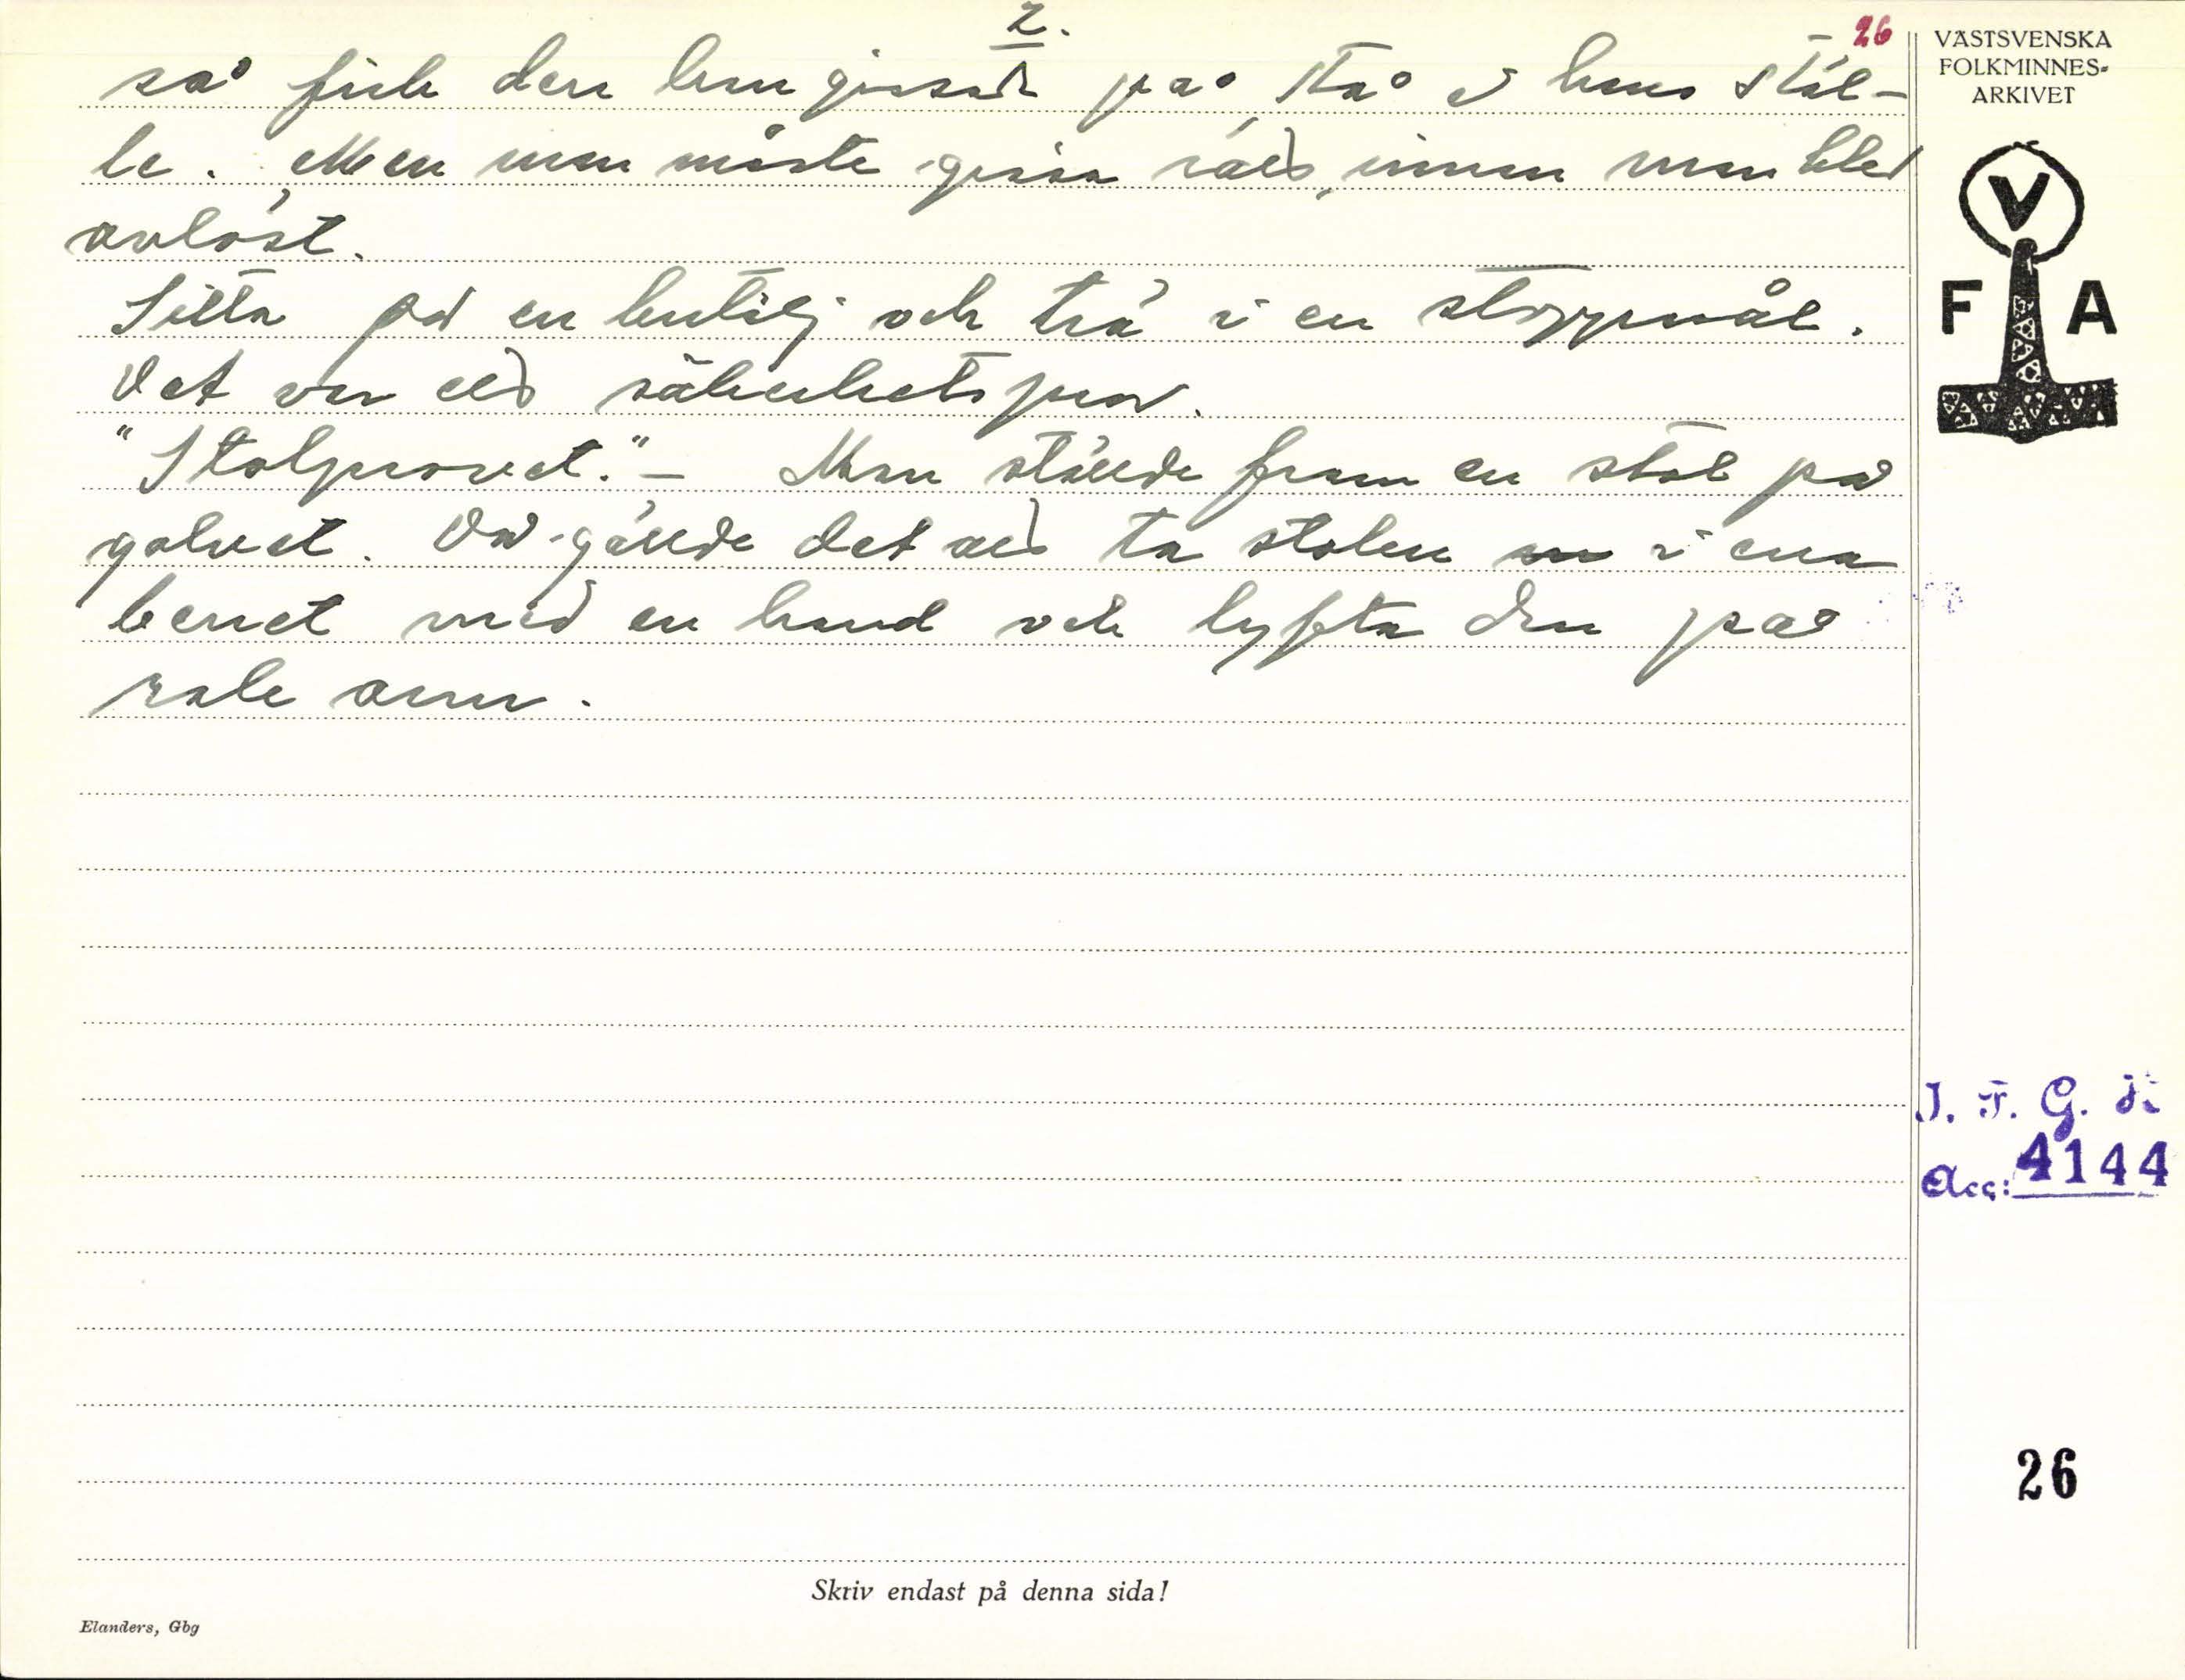 2.
26
så fick den han gissade på stå i hans stäl-
le. Men man måste gissa rätt, innan man blev
avlöst.
Sitta på en butelj och trä i en stoppnål.
Det var ett säkerhetsprov.
"Stolprovet." - Man ställde fram en stol på
golvet. Då gällde det att ta stolen i ena
benet med en hand och lyfta den på
rak arm.
VÄSTSVENSKA
FOLKMINNES-
ARKIVET
V
F A
I. F. G. H
Acc: 4144
26
Skriv endast på denna sida!
Elanders, Gbg